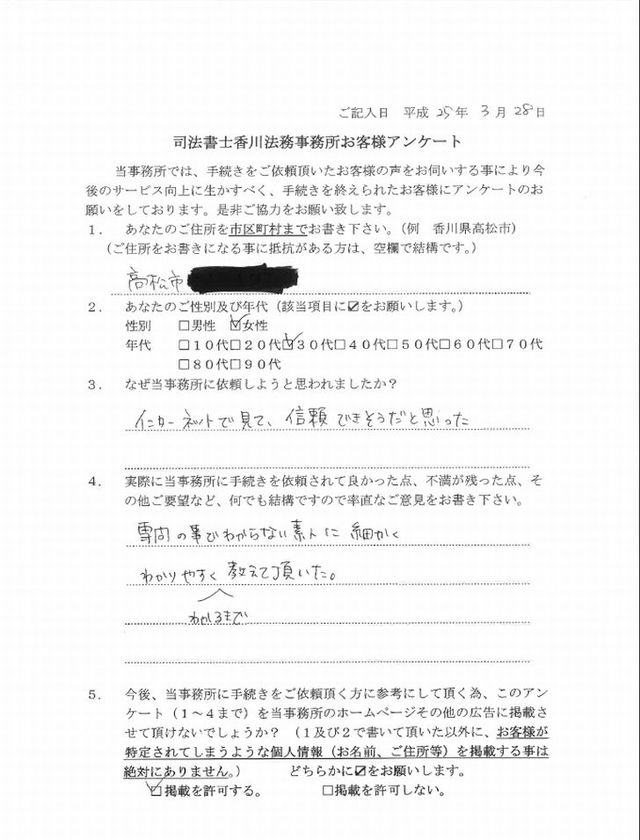 ご記入日 平成 25年 3月 28日
司法書士香川法務事務所お客様アンケート
当事務所では、手続きをご依頼頂いたお客様の声をお伺いする事により今
後のサービス向上に生かすべく、手続きを終えられたお客様にアンケートのお
願いをしております。是非ご協力をお願い致します。
1. あなたのご住所を市区町村までお書き下さい。(例 香川県高松市)
(ご住所をお書きになる事に抵抗がある方は、空欄で結構です。)
高松市
2. あなたのご性別及び年代(該当項目に☑をお願いします。)
性別 □男性 ☑女性
年代 □10代□20代☑30代□40代□50代□60代□70代
□80代□90代
3. なぜ当事務所に依頼しようと思われましたか?
インターネットで見て、信頼できそうだと思った
4. 実際に当事務所に手続きを依頼されて良かった点、不満が残った点、そ
の他ご要望など、何でも結構ですので率直なご意見をお書き下さい。
専門の事がわからない素人に細かく
わかりやすく教えて頂いた。
わかるまで
5. 今後、当事務所に手続きをご依頼頂く方に参考にして頂く為、このアン
ケート(1~4まで)を当事務所のホームページその他の広告に掲載さ
せて頂けないでしょうか? (1及び2で書いて頂いた以外に、お客様が
特定されてしまうような個人情報(お名前、ご住所等)を掲載する事は
絶対にありません。) どちらかに☑をお願いします。
☑掲載を許可する。 □掲載を許可しない。